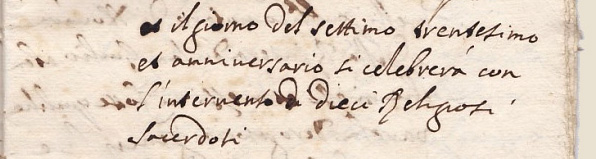 et il giorno del settimo trentesimo
et anniversario si celebrerà con
l'intervento di dieci Religiosi
sacerdoti